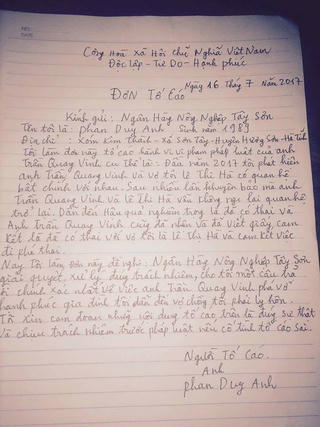 Cộng Hoà Xã Hội Chủ Nghĩa Việt Nam
Độc Lập - Tự Do - Hạnh phúc
Ngày 16 Tháng 7 Năm 2017
ĐƠN Tố Cáo
Kính gửi: Ngân Hàng Nông Nghiệp Tây Sơn
Tên tôi là: phan Duy Anh Sinh năm 1989
Địa chỉ: Xóm Kim thành - Xã Sơn Tây - Huyện Hương Sơn - Hà Tĩnh
Tôi làm đơn này tố cáo hành vi vi phạm pháp luật của anh
Trần Quang Vinh cụ thể là: Đầu năm 2017 tôi phát hiện
anh Trần Quang Vinh và vợ tôi Lê Thị Hà có quan hệ
bất chính với nhau. Sau nhiều lần khuyên bảo mà anh
Trần Quang Vinh và Lê Thị Hà vẫn không ngừng lại quan hệ
trở lại. Dẫn đến Hậu quả nghiêm trọng là đã có thai và
Anh trần Quang Vinh cũng đã nhận và đã viết giấy cam
kết là đã có thai với vợ tôi là Lê Thị Hà và cam kết việc
đi phá thai.
Nay Tôi làm đơn này đề nghị: Ngân Hàng Nông Nghiệp Tây Sơn
giải quyết, xử lý đúng trách nhiệm, cho tôi một câu trả
lời chính xác nhất về việc anh Trần Quang Vinh phá vỡ
hạnh phúc gia đình tôi dẫn đến vợ chồng tôi phải ly hôn.
Tôi xin cam đoan những nội dung tố cáo trên là đúng sự thật
và chịu trách nhiệm trước pháp luật nếu cố tình tố cáo sai.
Người Tố Cáo.
Anh
phan Duy Anh